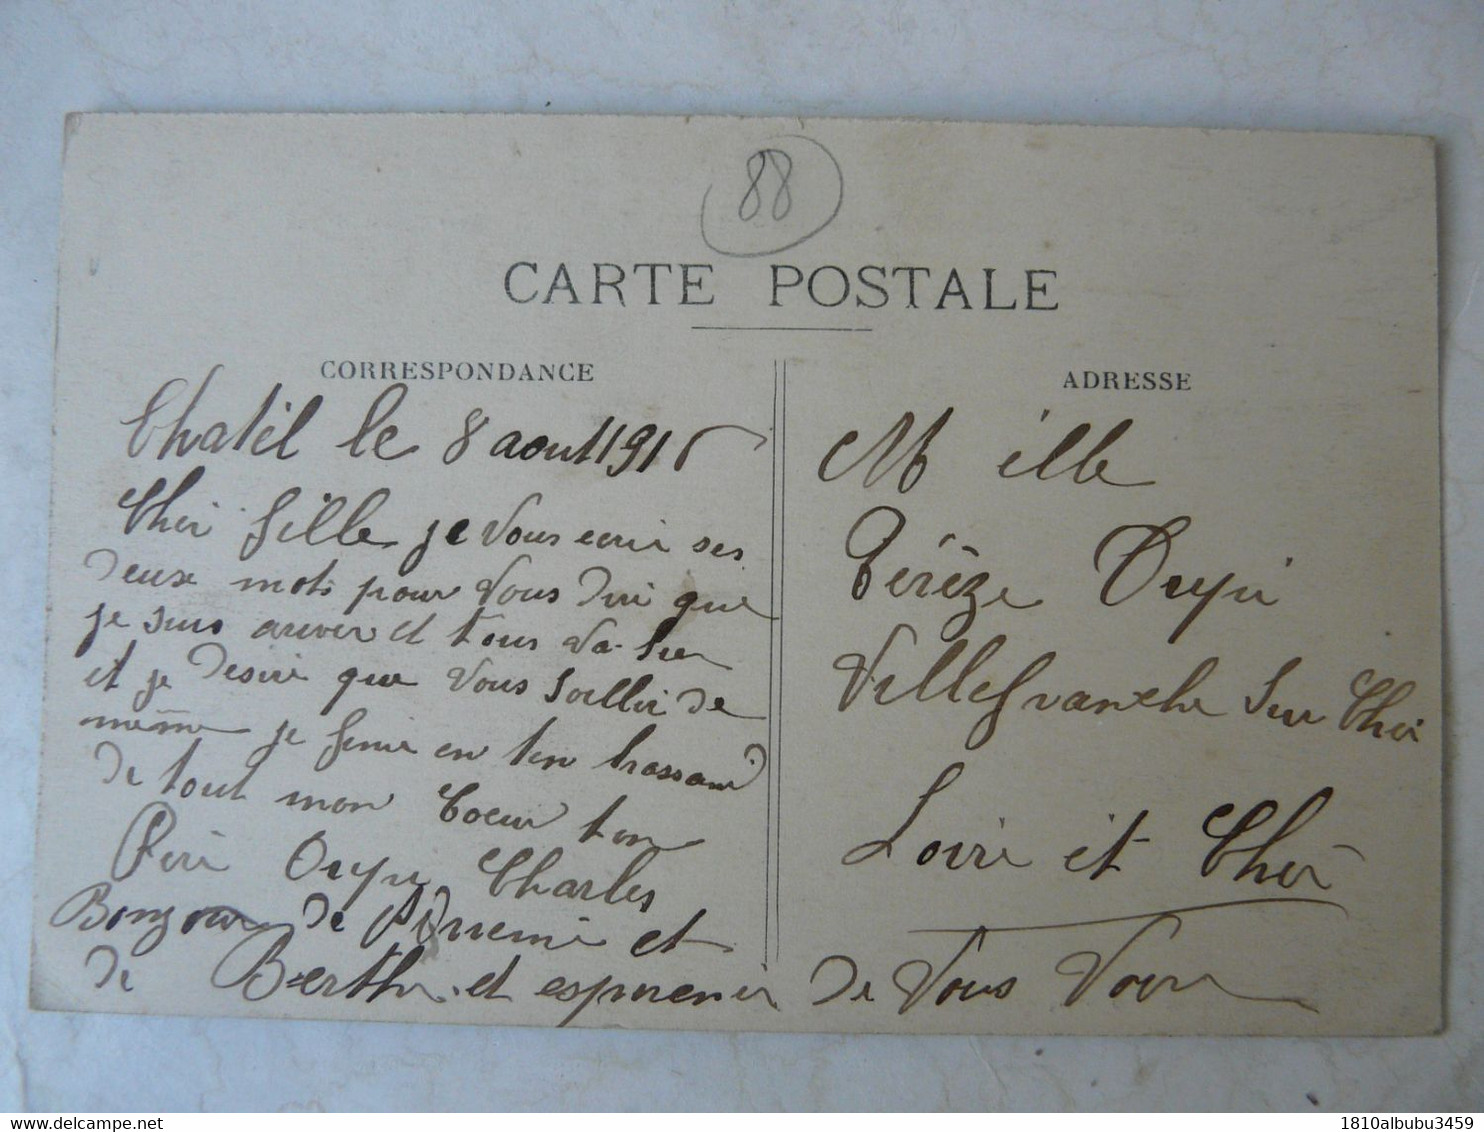 88
CARTE POSTALE
CORRESPONDANCE
Chatel le 8 aout 191
Cher fille je vous ecrir ses
deux mots pour vous dire que
je suis ariver et tous va bien
et je desire que vous soiller de
même je finir en ten brassant
de tout mon Coeur ton
Père Charles
Bonjour de et
de Berthe et esperence de vous voir
ADRESSE
M elle
Térèze
Villefranche sur Cher
Loire et Cher
delcampe.net
1810albubu3459